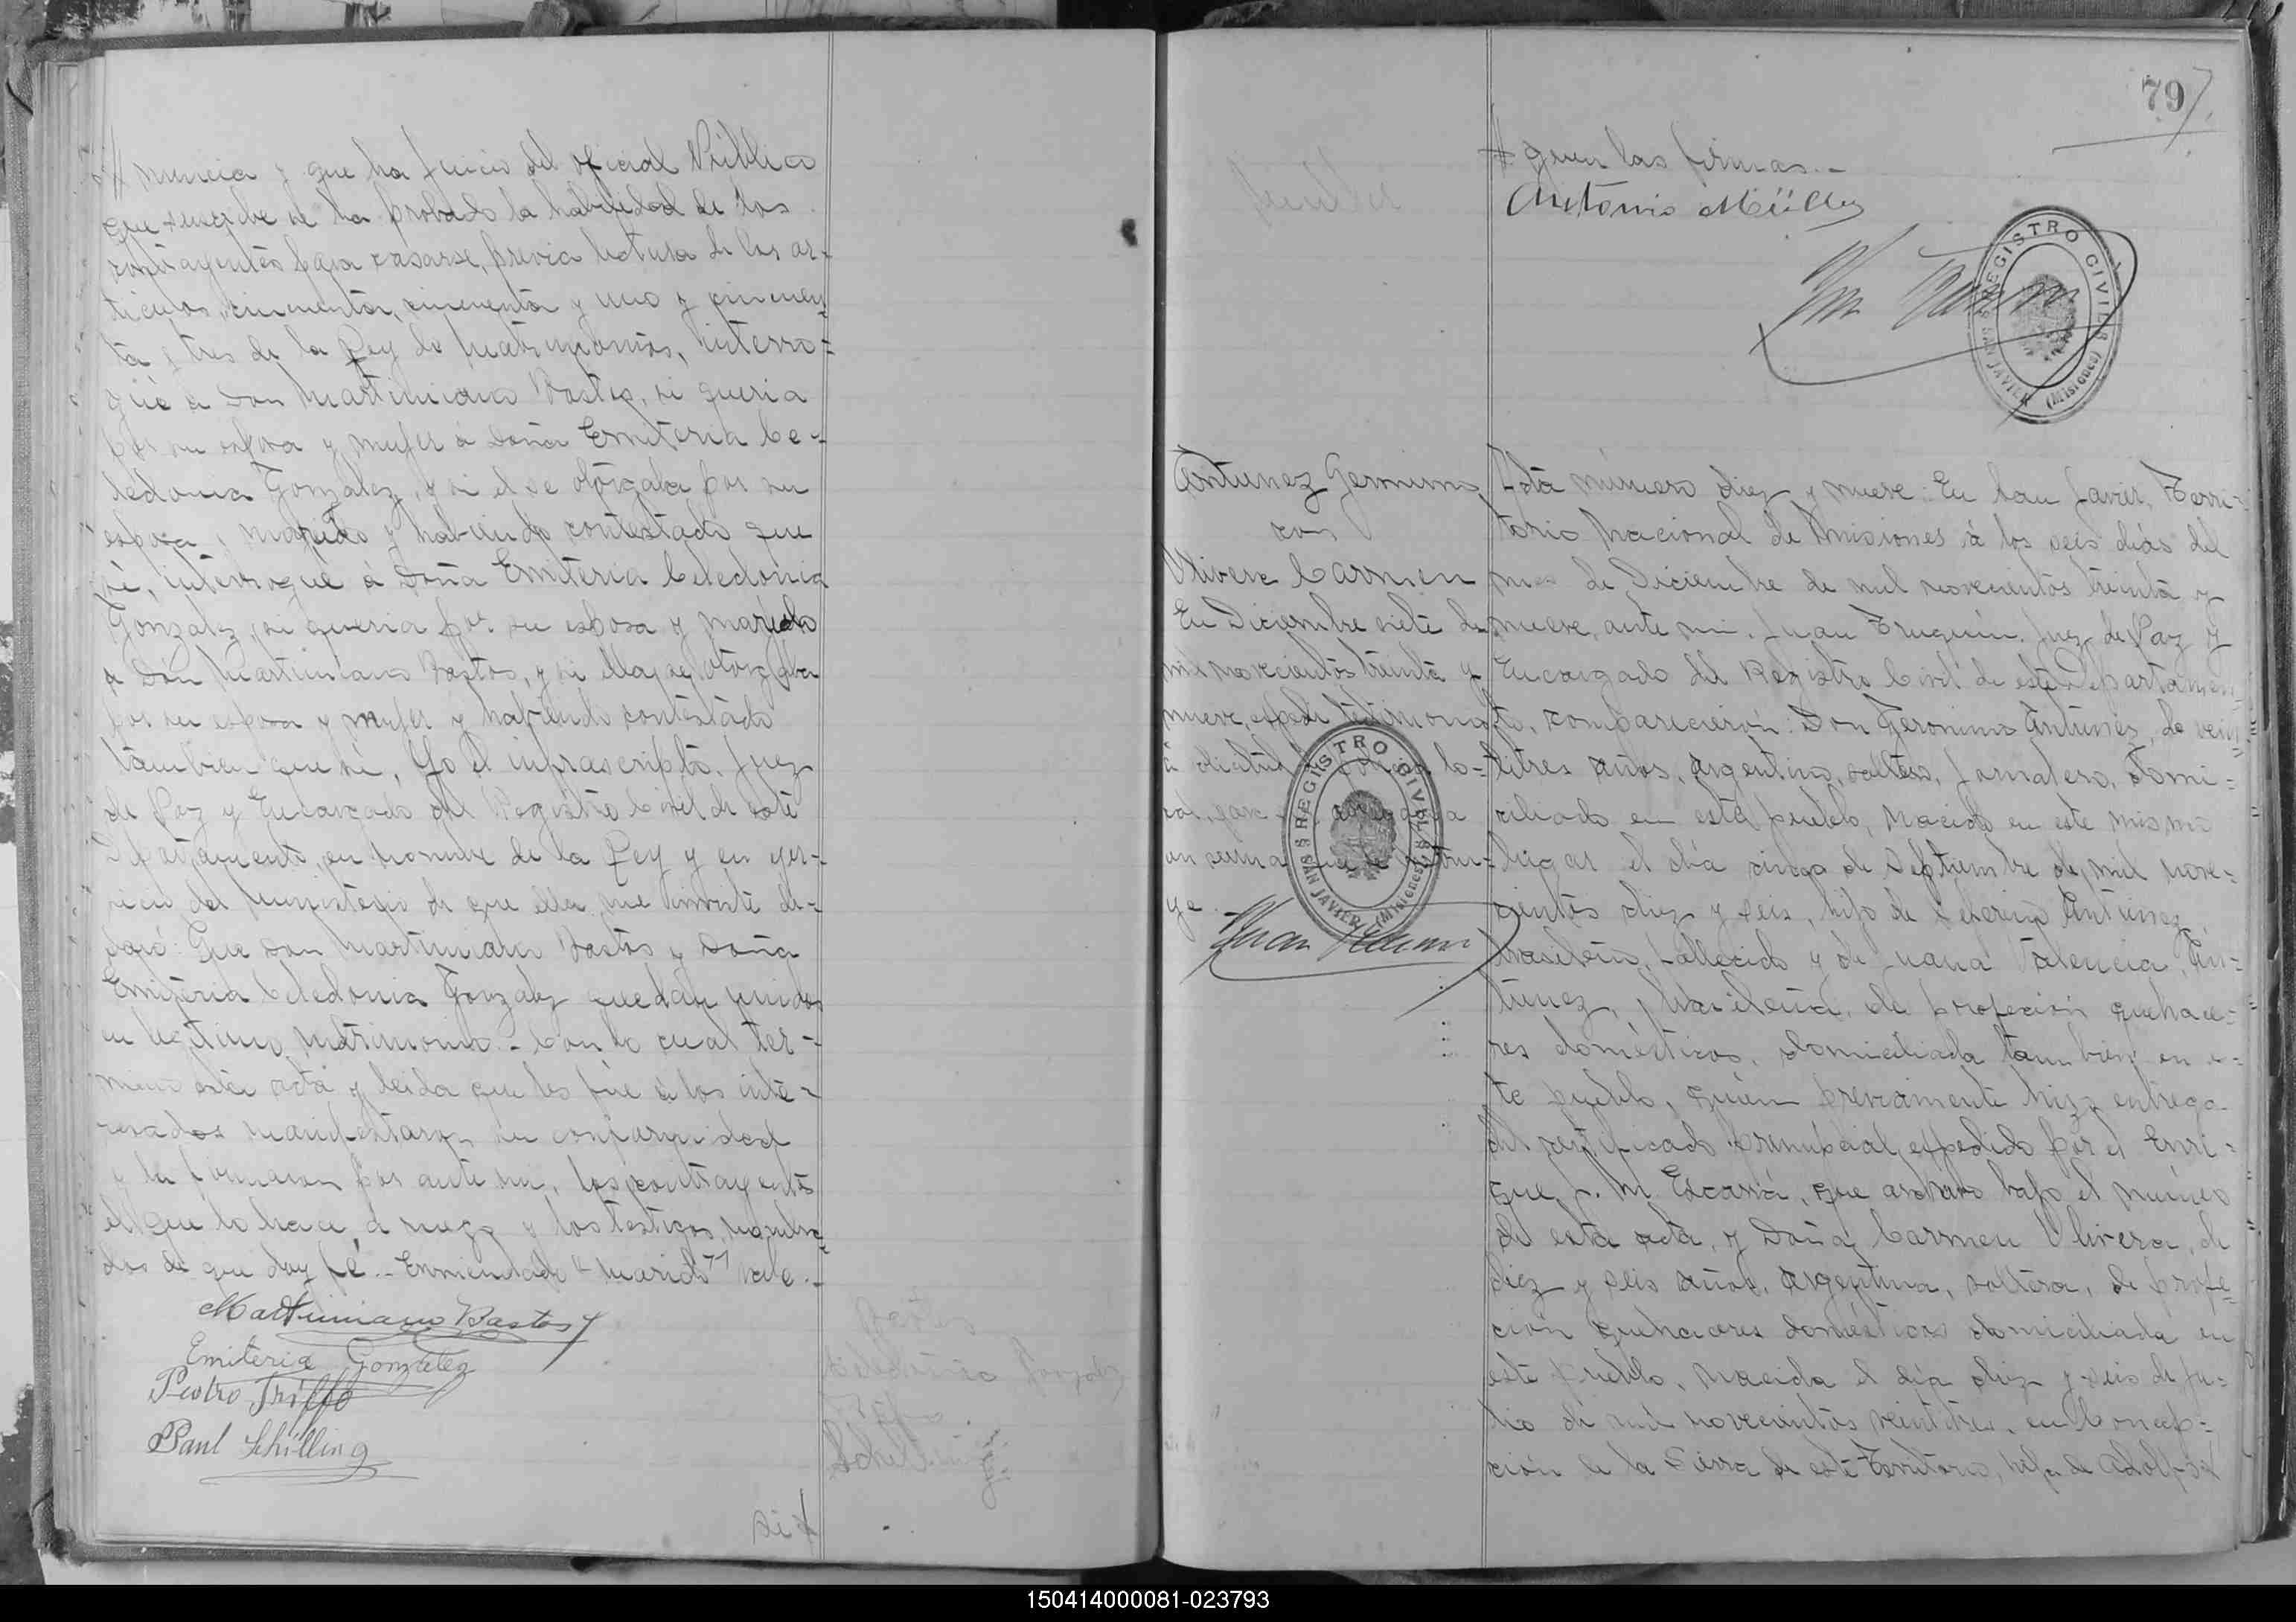 nuncia y que ha juicio del oficial Público
que suscribe se ha probado la habilidad de los
contrayentes para casarse, previa lectura de los ar-
ticulos, cincuenta, cincuenta y uno y cincuen-
ta y tres de la Ley de Matrimonios, interro-
gué a Don Martiniano Bastos, si queria
por su esposa y mujer á Doña Emiteria Ce-
ledonia Gonzalez, y si el se otorgaba por su
esposo y marido y habiendo contestado que
si, interrogué á Doña Emiteria Celedonia
Gonzalez, si queria por su esposo y marido
a Don Martiniano Bastos, y si ella se otorgaba
por su esposa y mujer y habiendo contestado
tambien que si, Yo el infrascripto, Juez
de Paz y Encargado del Registro Civil de este
Departamento, en nombre de la Ley y en ejer-
cicio del ministerio de que ella me inviste de-
claró: Que Don Martiniano Bastos y Doña
Emiteria Celedonia Gonzalez quedan unidos
en legitimo matrimonio.- Con lo cual ter-
minó esta acta y leida que les fué a los inte-
resados manifestaron su conformidad
y la firmaron por ante mi, los contrayentes
el que lo hace á ruego y los testigos nombra-
dos de que doy fé.- Enmendado "marido" vale.-
Martiniano Bastos
Emiteria Gonzalez
Pedro Triffo
Paul Schilling
79
guen las firmas.-
Antonio Müller
REGISTRO CIVIL
SAN JAVIER (Misiones)
Antunez Geronimo
con
Olivera Carmen
En Diciembre siete de
mil novecientos treinta y
nueve, expedi testimonio
á
lo-
cal, para
un
ye.-
Juan
REGISTRO CIVIL
SAN JAVIER (Misiones)
Acta número diez y nueve: En San Javier, Terri-
torio Nacional de Misiones á los seis dias del
mes de Diciembre de mil novecientos treinta y
nueve, ante mi, Juan Truquin, Juez de Paz y
Encargado del Registro Civil de este Departamen-
to, comparecieron: Don Geronimo Antunes, de vein-
titres años, argentino, soltero, jornalero, domi-
ciliado en este pueblo, nacido en este mismo
lugar el dia cinco de Septiembre de mil nove-
cientos diez y seis, hijo de Severino Antunez,
brasileño, fallecido y de Juana Valencia An-
tunez, brasileña, de profesión quehace-
res domésticos, domiciliada tambien en es-
te pueblo, quien previamente hizo entrega
del certificado prenupcial, expedido por el Enri-
que J. M. Escarrá, que archivo bajo el número
de esta acta, y Doña Carmen Olivera, de
diez y seis años, argentina, soltera, de profe-
ción quehaceres domésticos domiciliada en
este pueblo, nacida el dia diez y seis de Ju-
lio de mil novecientos veintitres, en Concep-
ción de la Sierra de este Territorio, hija de Adolfo
150414000081-023793